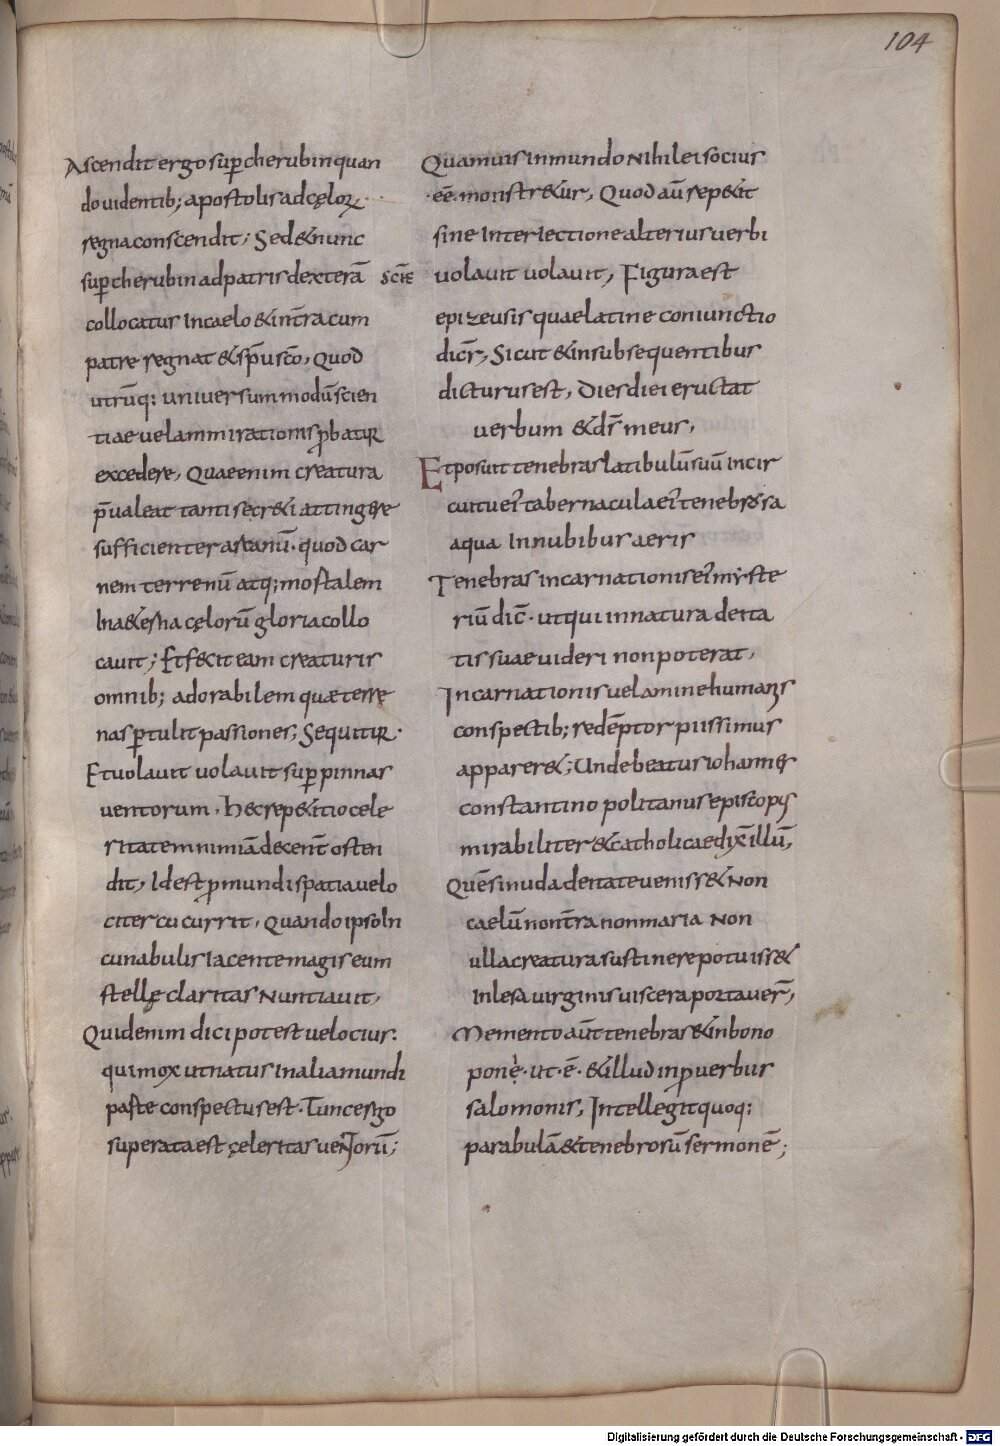 104
Ascendit ergo sup̄ cherubin quan
do uidentib; apostolis ad cęloꝝ
regna conscendit; Sed & nunc
sup̄ cherubin ad patris dexterā scīē
collocatus In caelo & in t̄ra cum
patre regnat & sp̄u sc̄o, Quod
utrūq: uniuersum modū scien
tiae uel ammirationis ꝓbatur
excedere, Quae enim creatura
p̄ualeat tanti secr&i attingere
sufficienter arcanū · quod car
nem terrenū atq; mortalem
In a&erna cęlorū gloria collo
cauit; Et fecit eam creaturis
omnib; adorabilem quae terre
nas ꝑtulit passiones; Sequitur ·
Et uolauit uolauit sup̄ pinnas
uentorum · Hec rep&itio cele
ritatem nimiā decent̄ osten
dit, Id est ꝑ mundi spatia uelo
citer cucurrit, Quando ipso In
cunabulis Iacente magis eum
stellę claritas Nuntiauit,
Quid enim dici potest uelocius:
qui mox ut natus In alia mundi
parte conspectus est · Tunc ergo
superata est çeleritas uentorū;
Quamuis in mundo Nihil ei socius
·eē· monstr&ur, Quod aū rep&it
sine Interiectione alterius uerbi
uolauit uolauit, Figura est
epizeusis quae latine coniunctio
dicr̄, Sicut & in subsequentibus
dicturus est, Dies diei eructat
uerbum & d̄s meus,
Et posuit tenebras latibulū suū in cir
cuitu ei' tabernacula ei' tenebrosa
aqua In nubibus aeris
Tenebras incarnationis ei' myste
riū dic̄ · ut qui in natura deita
tis suae uideri non poterat,
Incarnationis uelamine humanis
conspectib; redēptor piissimus
apparer&; Unde beatus iohannes
constantinopolitanus episcopus
mirabiliter & catholicae dix̄ illū,
Quē si nuda deitate ueniss& Non
caelū non t̄ra non maria Non
ulla creatura sustinere potuiss&
Inlesa uirginis uiscera portauer̄,
Memento aūt tenebras & in bono
ponę · ut · ē · & illud in ꝓuerbiis
salomonis, Intellegit quoq;
parabulā & tenebrosū sermonē;
Digitalisierung gefördert durch die Deutsche Forschungsgemeinschaft - DFG